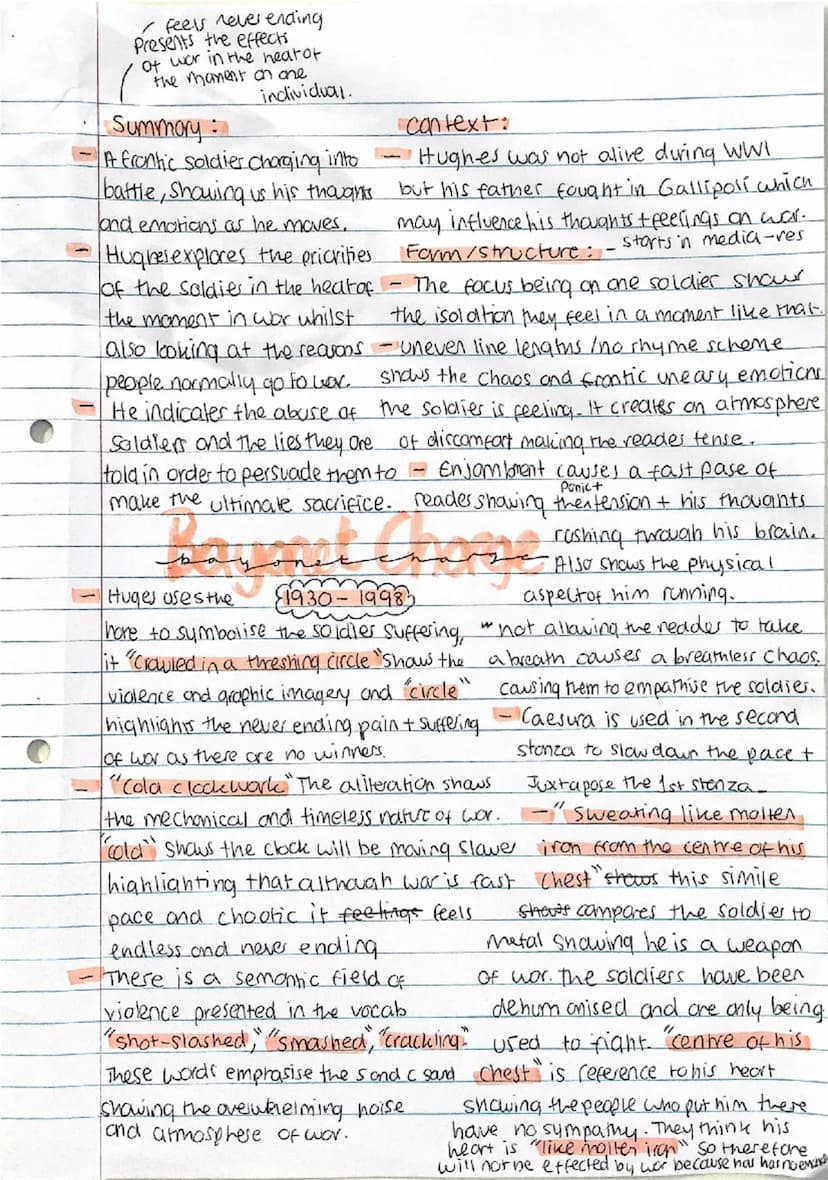 feels never ending
Presents the effects
of war in the heat of
the moment on one
individual.
Summary :
- A frantic soldier charging into
battle, Showing us his thoughts
and emotions as he moves.
- Hughes explores the priorities
of the soldier in the heat of
the moment in war whilst
also looking at the reasons
people normally go to war.
- He indicates the abuse of
soldiers and the lies they are
told in order to persuade them to
make the ultimate sacrifice.
context :
- Hughes was not alive during WW1
but his father fought in Gallipoli which
may influence his thoughts + feelings on war.
Form/structure : - starts in media-res
- The focus being on one soldier shows
the isolation they feel in a moment like that.
- uneven line lengths /no rhyme scheme
shows the chaos and frantic uneasy emotions
the soldier is feeling. It creates an atmosphere
of discomfort making the reader tense.
- Enjambment causes a fast pase of
reader showing the panic + tension + his thoughts
rushing through his brain.
Also shows the physical
aspect of him running.
Bayonet Charge
bayonet charge
1930 - 1998
- Huges uses the
hare to symbolise the soldier suffering,
it "Crawled in a threshing circle" shows the
violence and graphic imagery and "circle"
highlights the never ending pain + suffering
of war as there are no winners.
- "Cold clockwork" The aliteration shows
the mechanical and timeless nature of war.
"cold" shows the clock will be moving slower
highlighting that although war is fast
pace and chaotic it feelings feels
endless and never ending
- There is a semantic field of
violence presented in the vocab
"shot-slashed", "smashed", "crackling."
These words emphasise the s and c sand
showing the overwhelming noise
and atmosphere of war.
not allowing the reader to take
a breath causes a breathless chaos,
causing them to empathise the soldiers.
- Caesura is used in the second
stanza to slow down the pace +
Juxtapose the 1st stanza.
- "Sweating like molten
iron from the centre of his
chest" shows this simile
shows compares the soldier to
metal showing he is a weapon
of war. the soldiers have been
dehumanised and are only being
used to fight. "centre of his
chest" is reference to his heart
showing the people who put him there
have no sympathy. They think his
heart is "like molten iron" so therefore
will not be effected by war because has has no